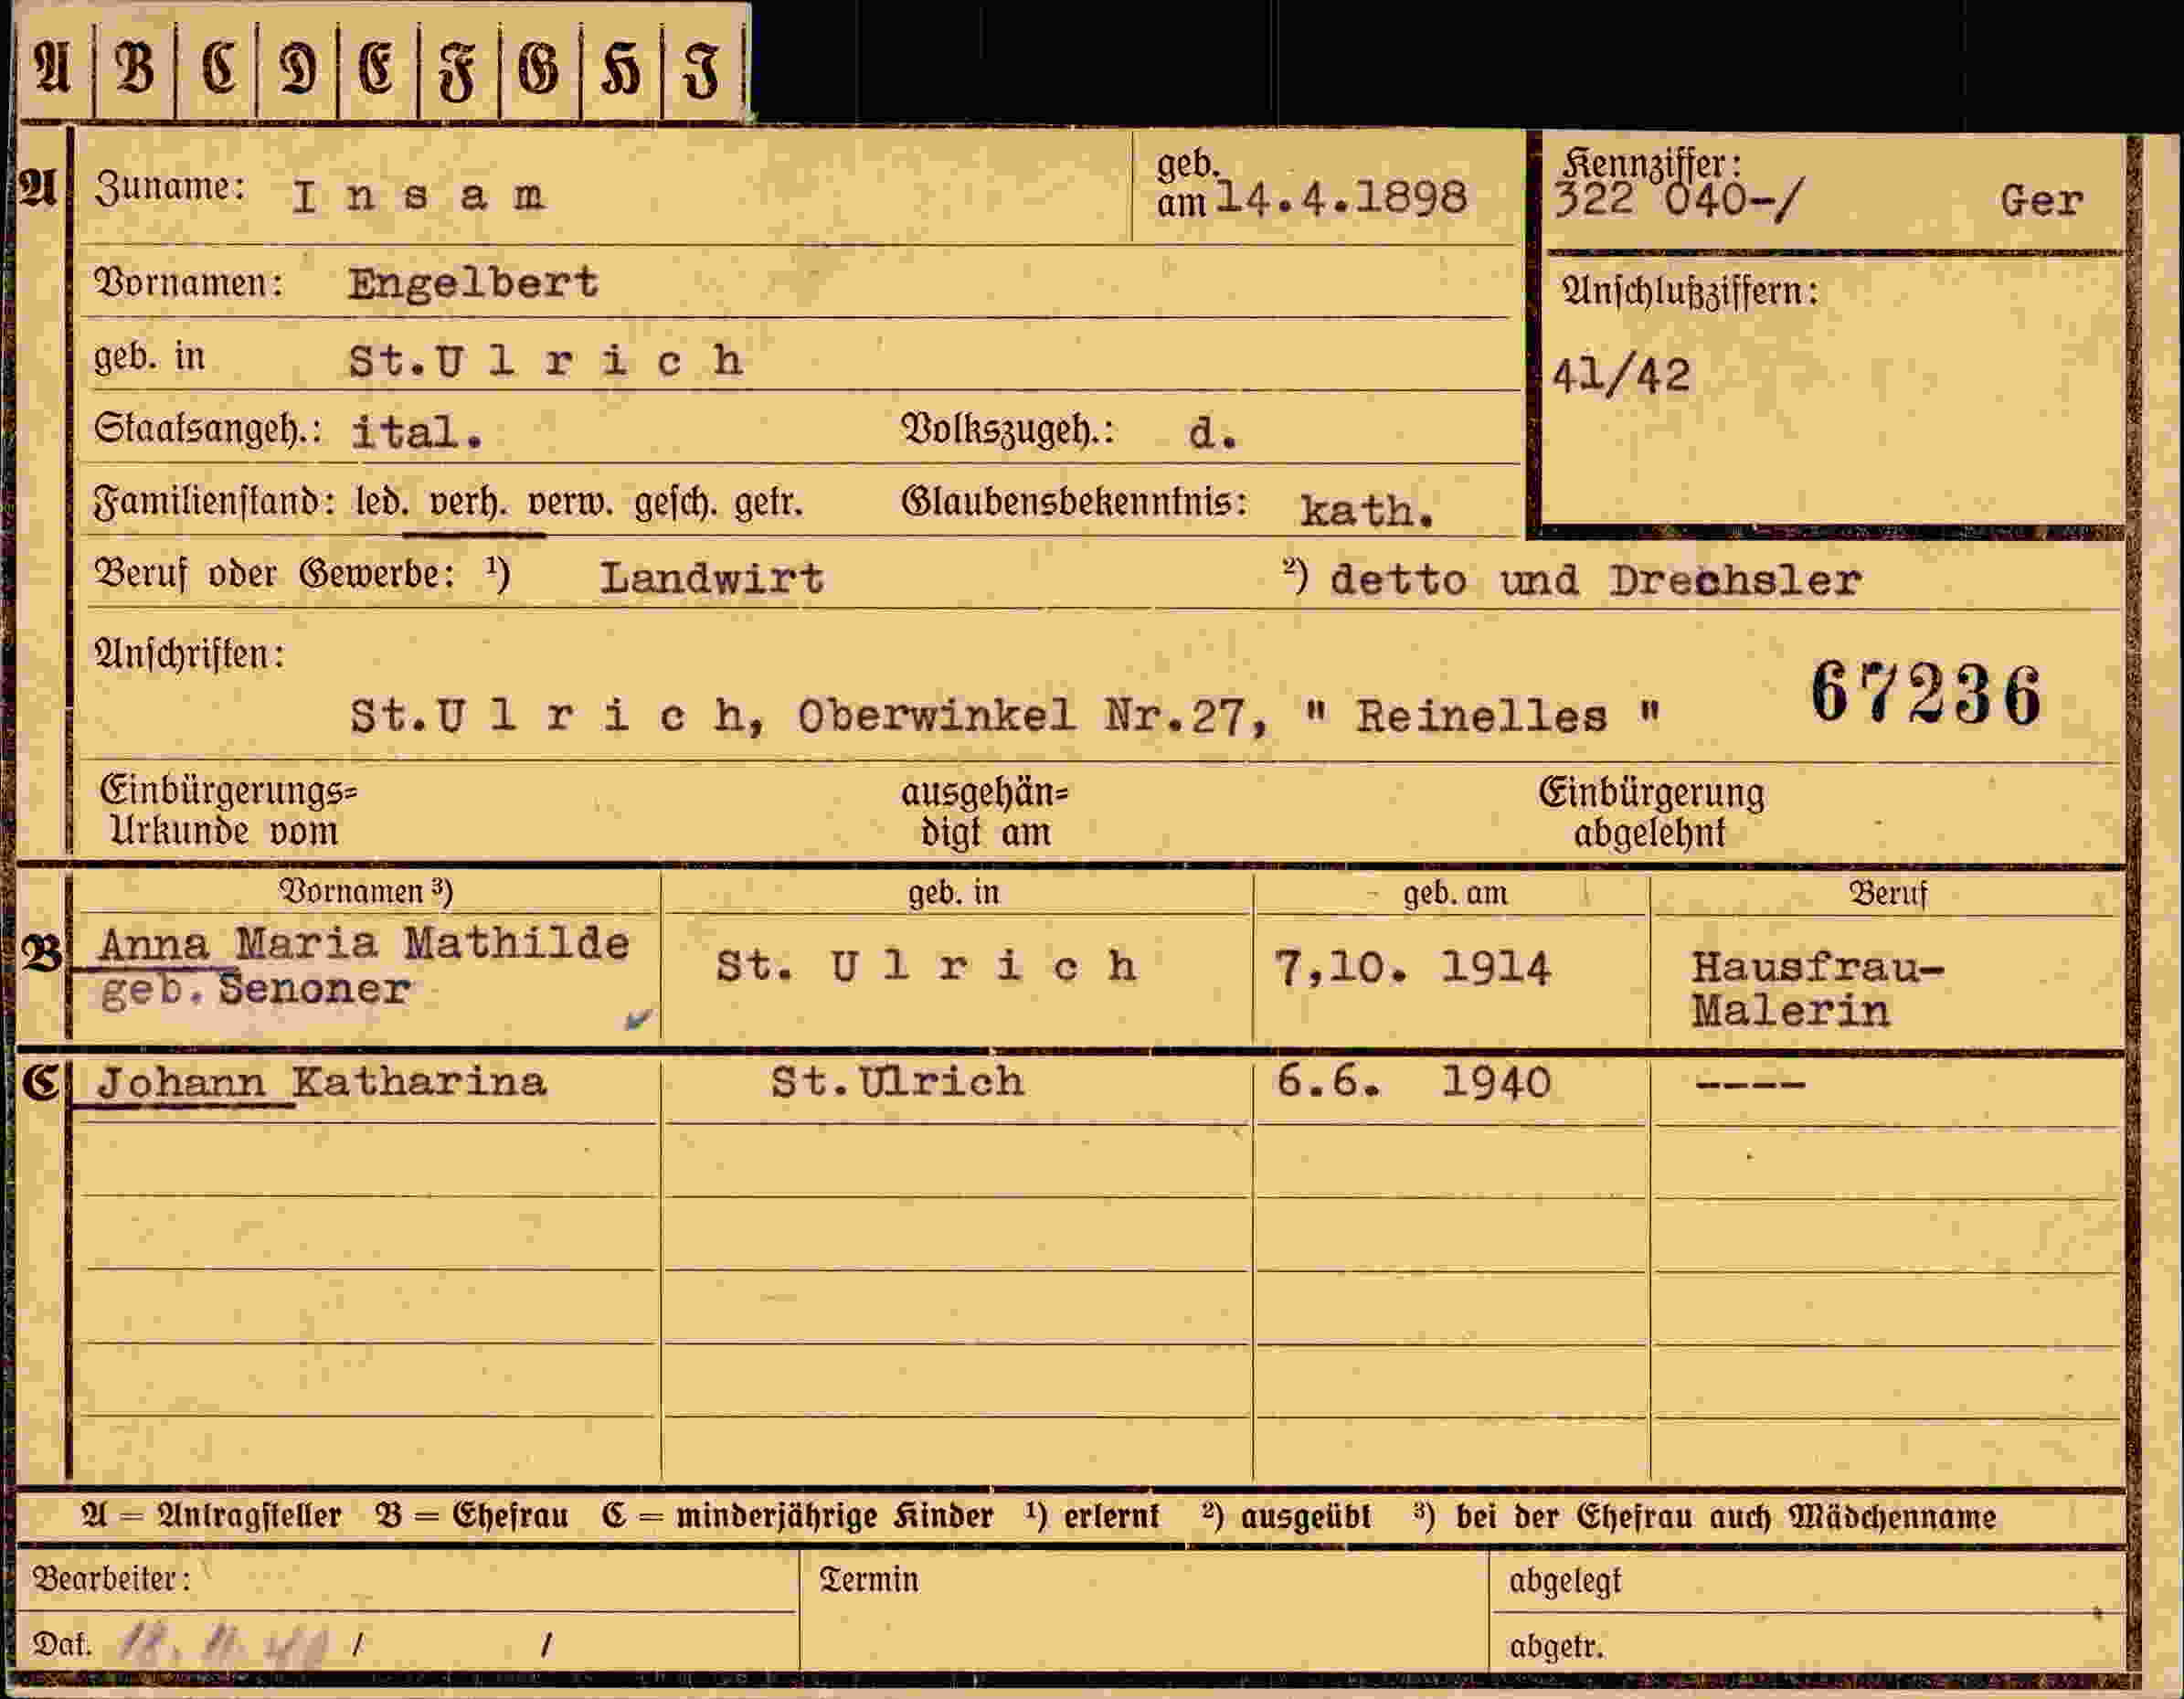 A B C D E F G H I
A Zuname: I n s a m geb. am 14.4.1898 Kennziffer: 322 040-/ Ger
Vornamen: Engelbert
Anschlußziffern:
geb. in St.U l r i c h
41/42
Staatsangeh.: ital. Volkszugeh.: d.
Familienstand: led. verh. verw. gesch. getr. Glaubensbekenntnis: kath.
Beruf oder Gewerbe: ¹) Landwirt ²) detto und Drechsler
Anschriften:
St.U l r i c h, Oberwinkel Nr.27, " Reinelles " 67236
Einbürgerungs= ausgehän= Einbürgerung
Urkunde vom digt am abgelehnt
Vornamen ³) geb. in geb. am Beruf
B Anna Maria Mathilde St. U l r i c h 7,10. 1914 Hausfrau-
geb. Senoner Malerin
C Johann Katharina St.Ulrich 6.6. 1940 ----
A = Antragsteller B = Ehefrau C = minderjährige Kinder ¹) erlernt ²) ausgeübt ³) bei der Ehefrau auch Mädchenname
Bearbeiter: Termin abgelegt
Dat. / / abgetr.